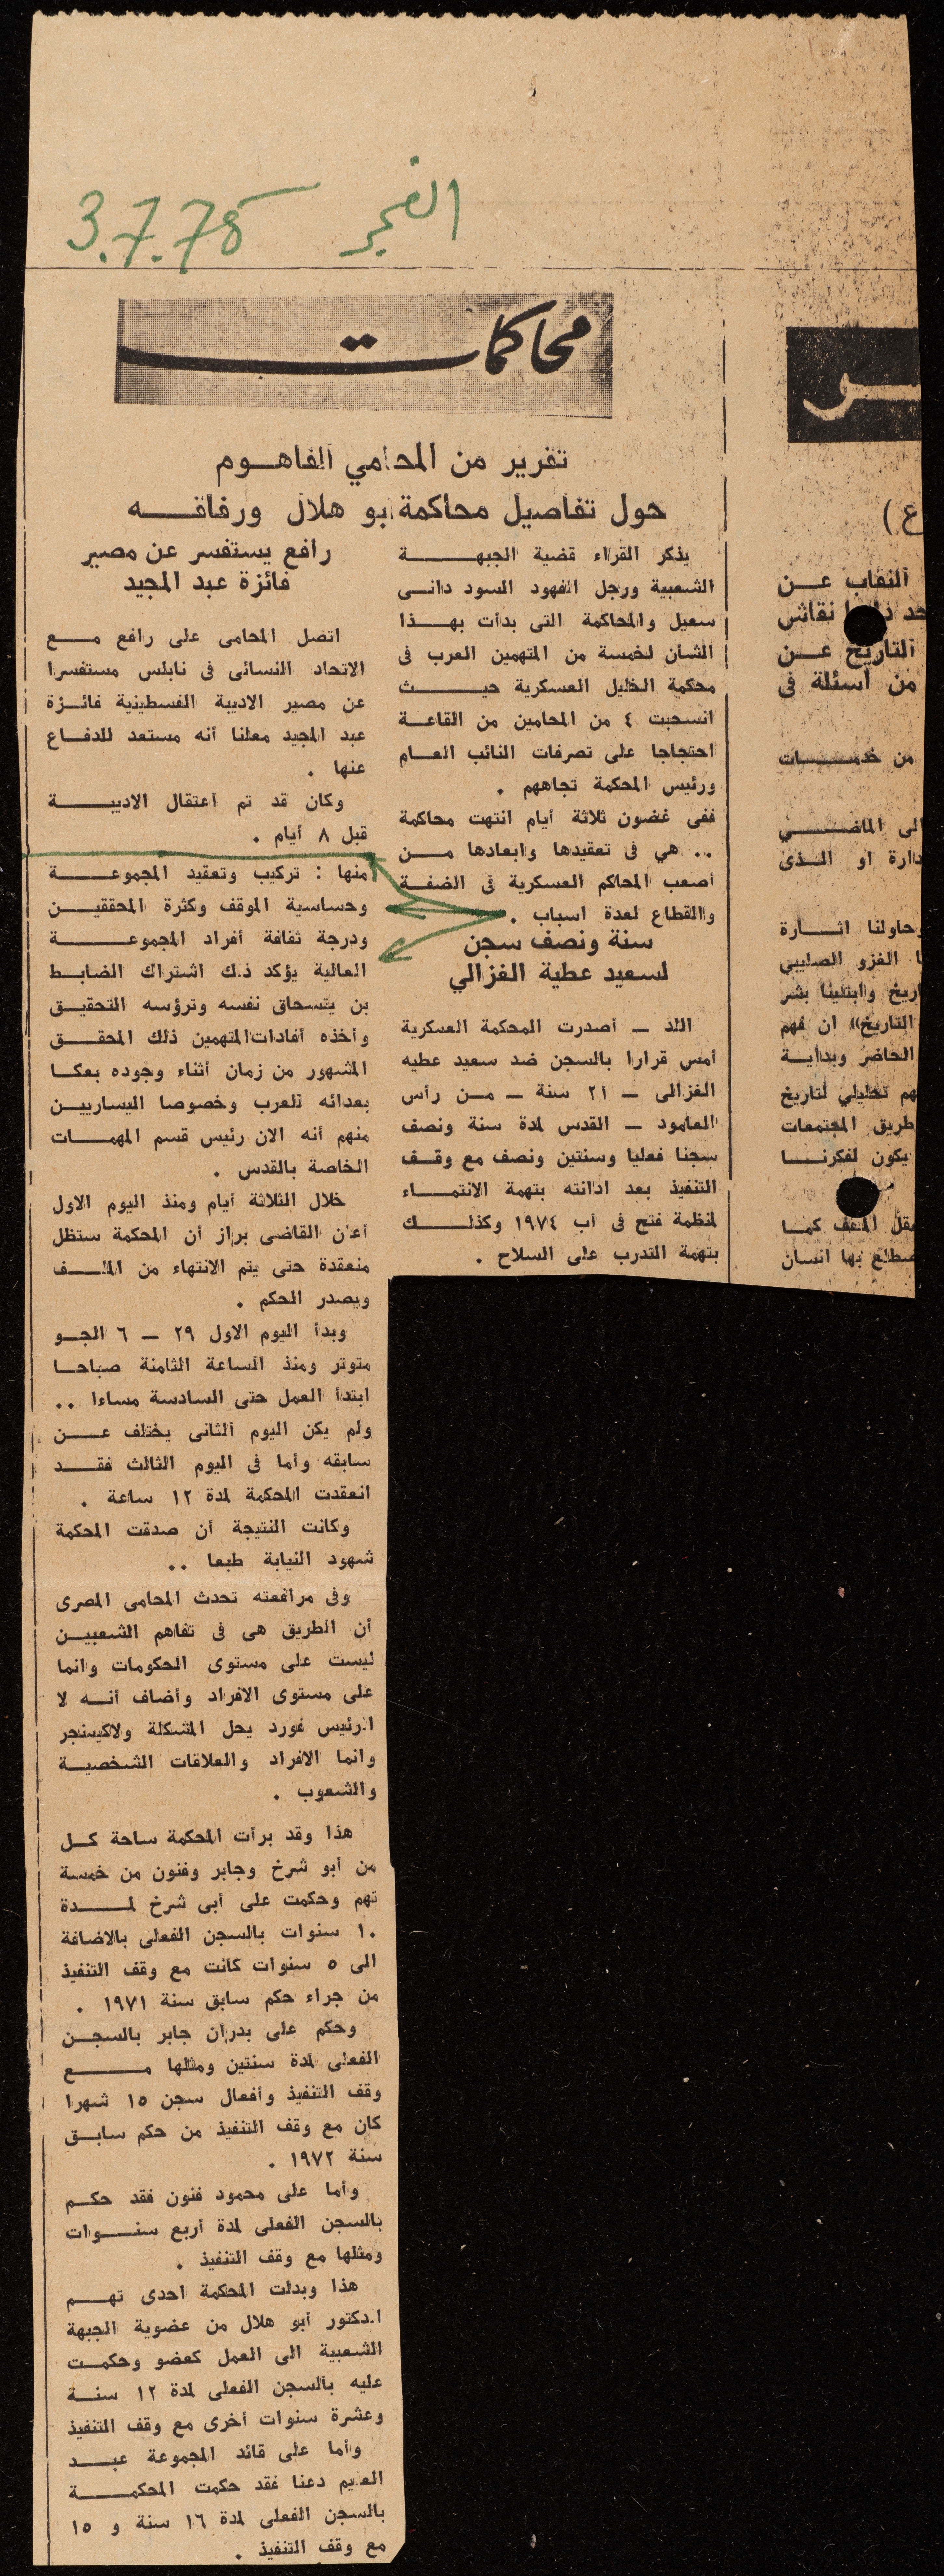 الفجر 3.7.75
محاكمات
تقرير من المحامي الفاهوم
حول تفاصيل محاكمة ابو هلال ورفاقه
يذكر القراء قضية الجبهة
الشعبية ورجل الفهود السود دانى
سعيل والمحاكمة التى بدأت بهذا
الشأن لخمسة من المتهمين العرب فى
محكمة الخليل العسكرية حيث
انسحبت ٤ من المحامين من القاعة
احتجاجا على تصرفات النائب العام
ورئيس المحكمة تجاههم .
ففى غضون ثلاثة أيام انتهت محاكمة
.. هي فى تعقيدها وابعادها من
أصعب المحاكم العسكرية فى الضفة
والقطاع لعدة اسباب .
سنة ونصف سجن
لسعيد عطية الغزالي
اللد ــ أصدرت المحكمة العسكرية
أمس قرارا بالسجن ضد سعيد عطيه
الغزالى ــ ٢١ سنة ــ من رأس
العامود ــ القدس لمدة سنة ونصف
سجنا فعليا وسنتين ونصف مع وقف
التنفيذ بعد ادانته بتهمة الانتماء
لمنظمة فتح فى آب ١٩٧٤ وكذلك
بتهمة التدرب على السلاح .
رافع يستفسر عن مصير
فائزة عبد المجيد
اتصل المحامى على رافع مع
الاتحاد النسائى فى نابلس مستفسرا
عن مصير الاديبة الفسطينية فائزة
عبد المجيد معلنا أنه مستعد للدفاع
عنها .
وكان قد تم اعتقال الاديبة
قبل ٨ أيام .
منها : تركيب وتعقيد المجموعة
وحساسية الموقف وكثرة المحققين
ودرجة ثقافة أفراد المجموعة
العالية يؤكد ذلك اشتراك الضابط
بن يتسحاق نفسه وترؤسه التحقيق
وأخذه أفادات المتهمين ذلك المحقق
المشهور من زمان أثناء وجوده بعكا
بعدائه للعرب وخصوصا اليساريين
منهم أنه الان رئيس قسم المهمات
الخاصة بالقدس .
خلال الثلاثة أيام ومنذ اليوم الاول
أعلن القاضى براز أن المحكمة ستظل
منعقدة حتى يتم الانتهاء من الملف
ويصدر الحكم .
وبدأ اليوم الاول ٢٩ ــ ٦ الجو
متوتر ومنذ الساعة الثامنة صباحا
ابتدأ العمل حتى السادسة مساءا ..
ولم يكن اليوم الثانى يختلف عن
سابقه وأما فى اليوم الثالث فقد
انعقدت المحكمة لمدة ١٢ ساعة .
وكانت النتيجة أن صدقت المحكمة
شهود النيابة طبعا ..
وفى مرافعته تحدث المحامى المصرى
أن الطريق هى فى تفاهم الشعبين
ليست على مستوى الحكومات وانما
على مستوى الافراد وأضاف أنه لا
الرئيس فورد يحل المشكلة ولاكيسنجر
وانما الافراد والعلاقات الشخصية
والشعوب .
هذا وقد برأت المحكمة ساحة كل
من أبو شرخ وجابر وفنون من خمسة
تهم وحكمت على أبى شرخ لمدة
١٠ سنوات بالسجن الفعلى بالاضافة
الى ٥ سنوات كانت مع وقف التنفيذ
من جراء حكم سابق سنة ١٩٧١ .
وحكم على بدران جابر بالسجن
الفعلى لمدة سنتين ومثلها مع
وقف التنفيذ وأفعال سجن ١٥ شهرا
كان مع وقف التنفيذ من حكم سابق
سنة ١٩٧٢ .
وأما على محمود فنون فقد حكم
بالسجن الفعلى لمدة أربع سنوات
ومثلها مع وقف التنفيذ .
هذا وبدلت المحكمة احدى تهم
الدكتور أبو هلال من عضوية الجبهة
الشعبية الى العمل كعضو وحكمت
عليه بالسجن الفعلى لمدة ١٢ سنة
وعشرة سنوات أخرى مع وقف التنفيذ
وأما على قائد المجموعة عبد
العليم دعنا فقد حكمت المحكمة
بالسجن الفعلى لمدة ١٦ سنة و ١٥
مع وقف التنفيذ .
ع )
النقاب عن
نقاش
التاريخ عن
من أسئلة فى
من خدمات
الى الماضي
دارة او الذى
وحاولنا اثارة
الغزو الصليبي
وابتلينا بشر
التاريخ)) ان فهم
الحاضر وبداية
هم تحليلي لتاريخ
طريق المجتمعات
يكون لفكرنا
كما
بها انسان